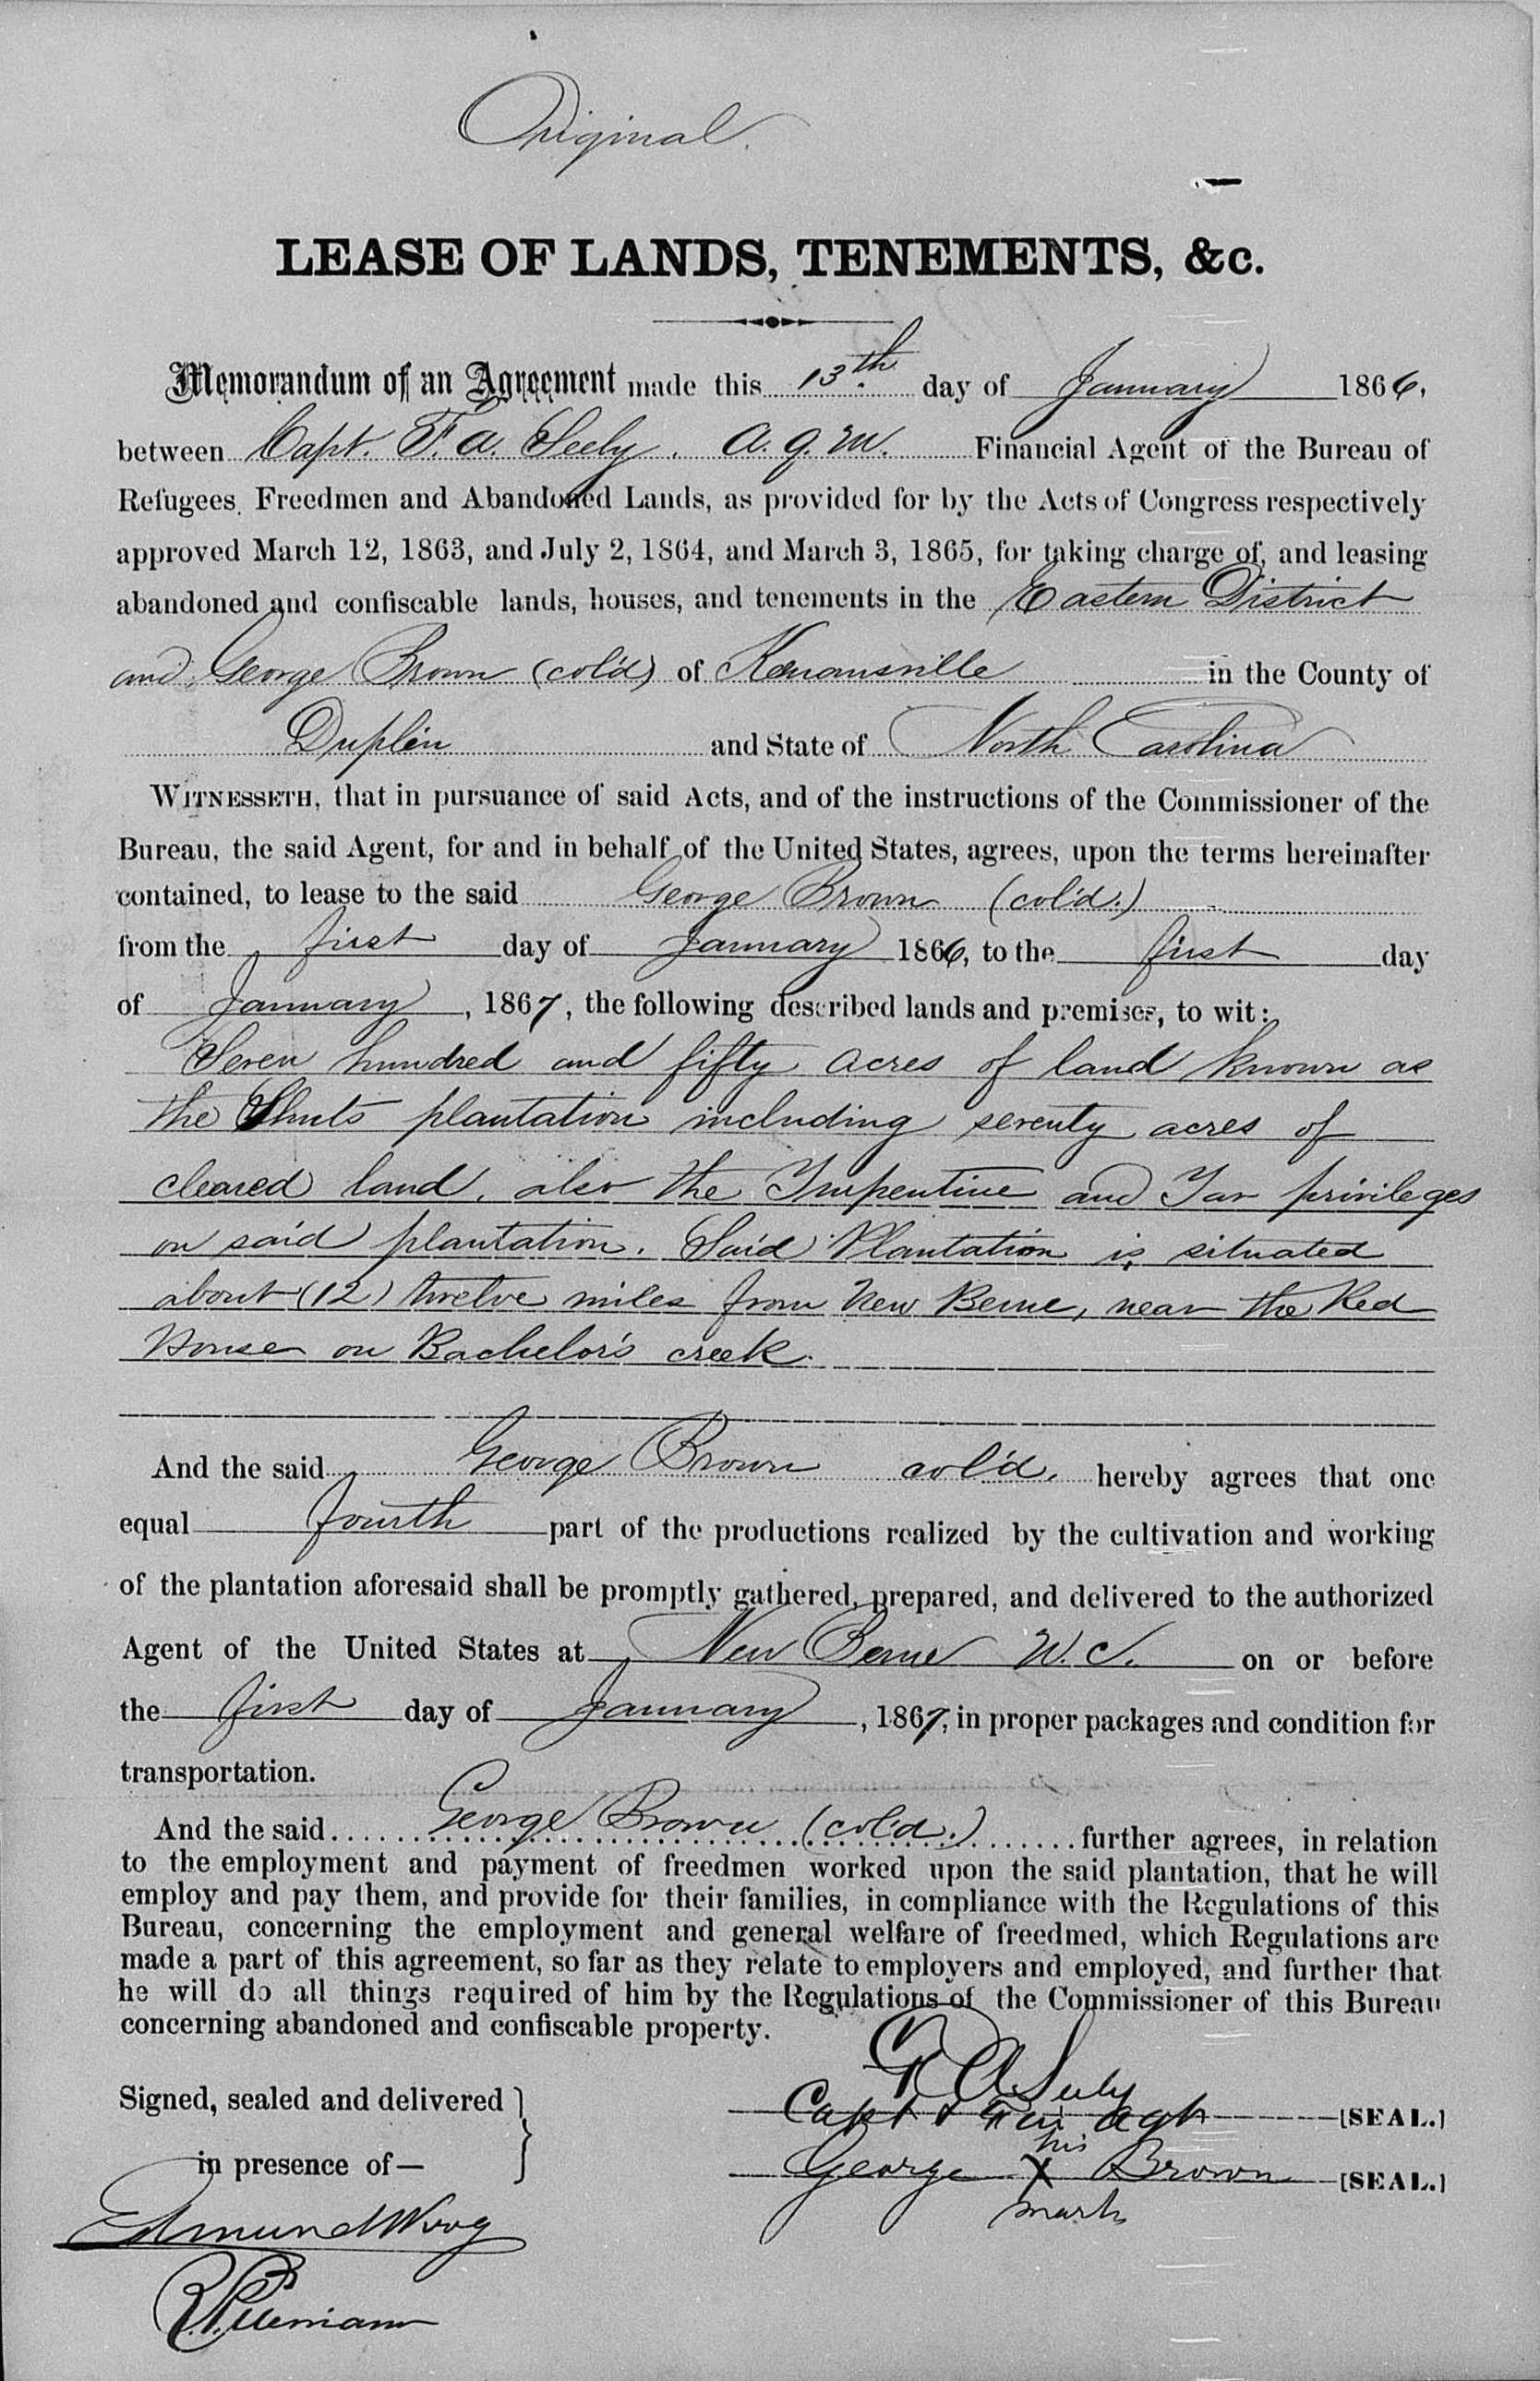 Original.
LEASE OF LANDS, TENEMENTS, &c.
Memorandum of an Agreement made this 13th. day of January 1866,
between Capt. F. A. Seely. A. Q. M. Financial Agent of the Bureau of
Refugees, Freedmen and Abandoned Lands, as provided for by the Acts of Congress respectively
approved March 12, 1863, and July 2, 1864, and March 3, 1865, for taking charge of, and leasing
abandoned and confiscable lands, houses, and tenements in the Eastern District
and George Brown (col'd) of Kenansville in the County of
Duplin and State of North Carolina
WITNESSETH, that in pursuance of said Acts, and of the instructions of the Commissioner of the
Bureau, the said Agent, for and in behalf of the United States, agrees, upon the terms hereinafter
contained, to lease to the said George Brown (col'd.)
from the first day of January 1866, to the first day
of January, 1867, the following described lands and premises, to wit:
Seven hundred and fifty acres of land known as
the plantation including seventy acres of
cleared land, also the Turpentine and Tar privileges
on said plantation. Said Plantation is situated
about (12) twelve miles from New Berne, near the Red
House on Bachelor's creek.
And the said George Brown col'd. hereby agrees that one
equal fourth part of the productions realized by the cultivation and working
of the plantation aforesaid shall be promptly gathered, prepared, and delivered to the authorized
Agent of the United States at New Berne N. C. on or before
the first day of January, 1867, in proper packages and condition for
transportation.
And the said George Brown (col'd.) further agrees, in relation
to the employment and payment of freedmen worked upon the said plantation, that he will
employ and pay them, and provide for their families, in compliance with the Regulations of this
Bureau, concerning the employment and general welfare of freedmed, which Regulations are
made a part of this agreement, so far as they relate to employers and employed, and further that
he will do all things required of him by the Regulations of the Commissioner of this Bureau
concerning abandoned and confiscable property.
F A Seely
Signed, sealed and delivered Capt & Fin Agt [SEAL.]
in presence of— George his X mark Brown [SEAL.]
Edmund